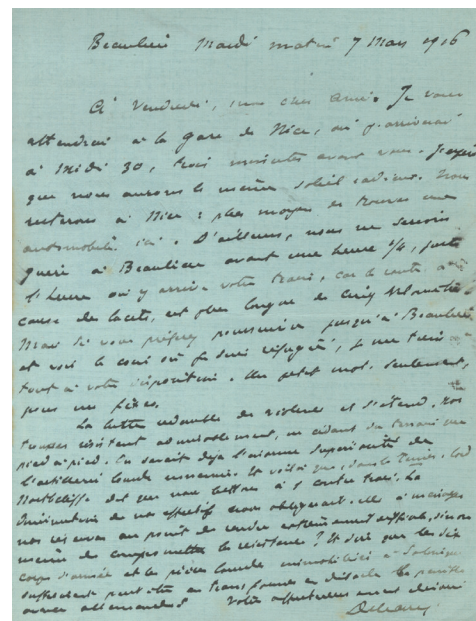 Beaulieu Mardi matin 7 Mars 1916
A Vendredi, mon cher Ami. Je vous
attendrai à la gare de Nice, où j'arriverai
à Midi 30, trois minutes avant vous. J'espère
que nous aurons le même soleil radieux. Nous
resterons à Nice : plus moyen de trouver une
automobile ici. D'ailleurs, nous ne serions
guère à Beaulieu avant une heure 1/4, juste
l'heure où y arrive votre train, car la route, à
cause de lacets, est plus longue de cinq kilomètres
Mais si vous préférez poursuivre jusqu'à Beaulieu
et voir le coin où je suis réfugié, je me tiens
tout à votre disposition. Un petit mot, seulement,
pour me fixer.
La lutte redouble de violence et s'étend. Nos
troupes résistent admirablement, en cédant du terrain que
pied à pied. On savait déjà l'énorme supériorité de
l'artillerie lourde ennemie. Et voilà que, dans le Times, Lord
Northcliffe dit que nous luttons à 1 contre trois. La
diminution de nos effectifs nous obligerait-elle à ménager
nos réserves au point de rendre extrêmement difficile, sinon
même de compromettre la résistance ? Et dire que les dix
corps d'armée et les pièces lourdes immobilisés à Salonique
suffiraient peut-être à transformer en débâcle la
avance allemande !
Votre affectueusement dévoué